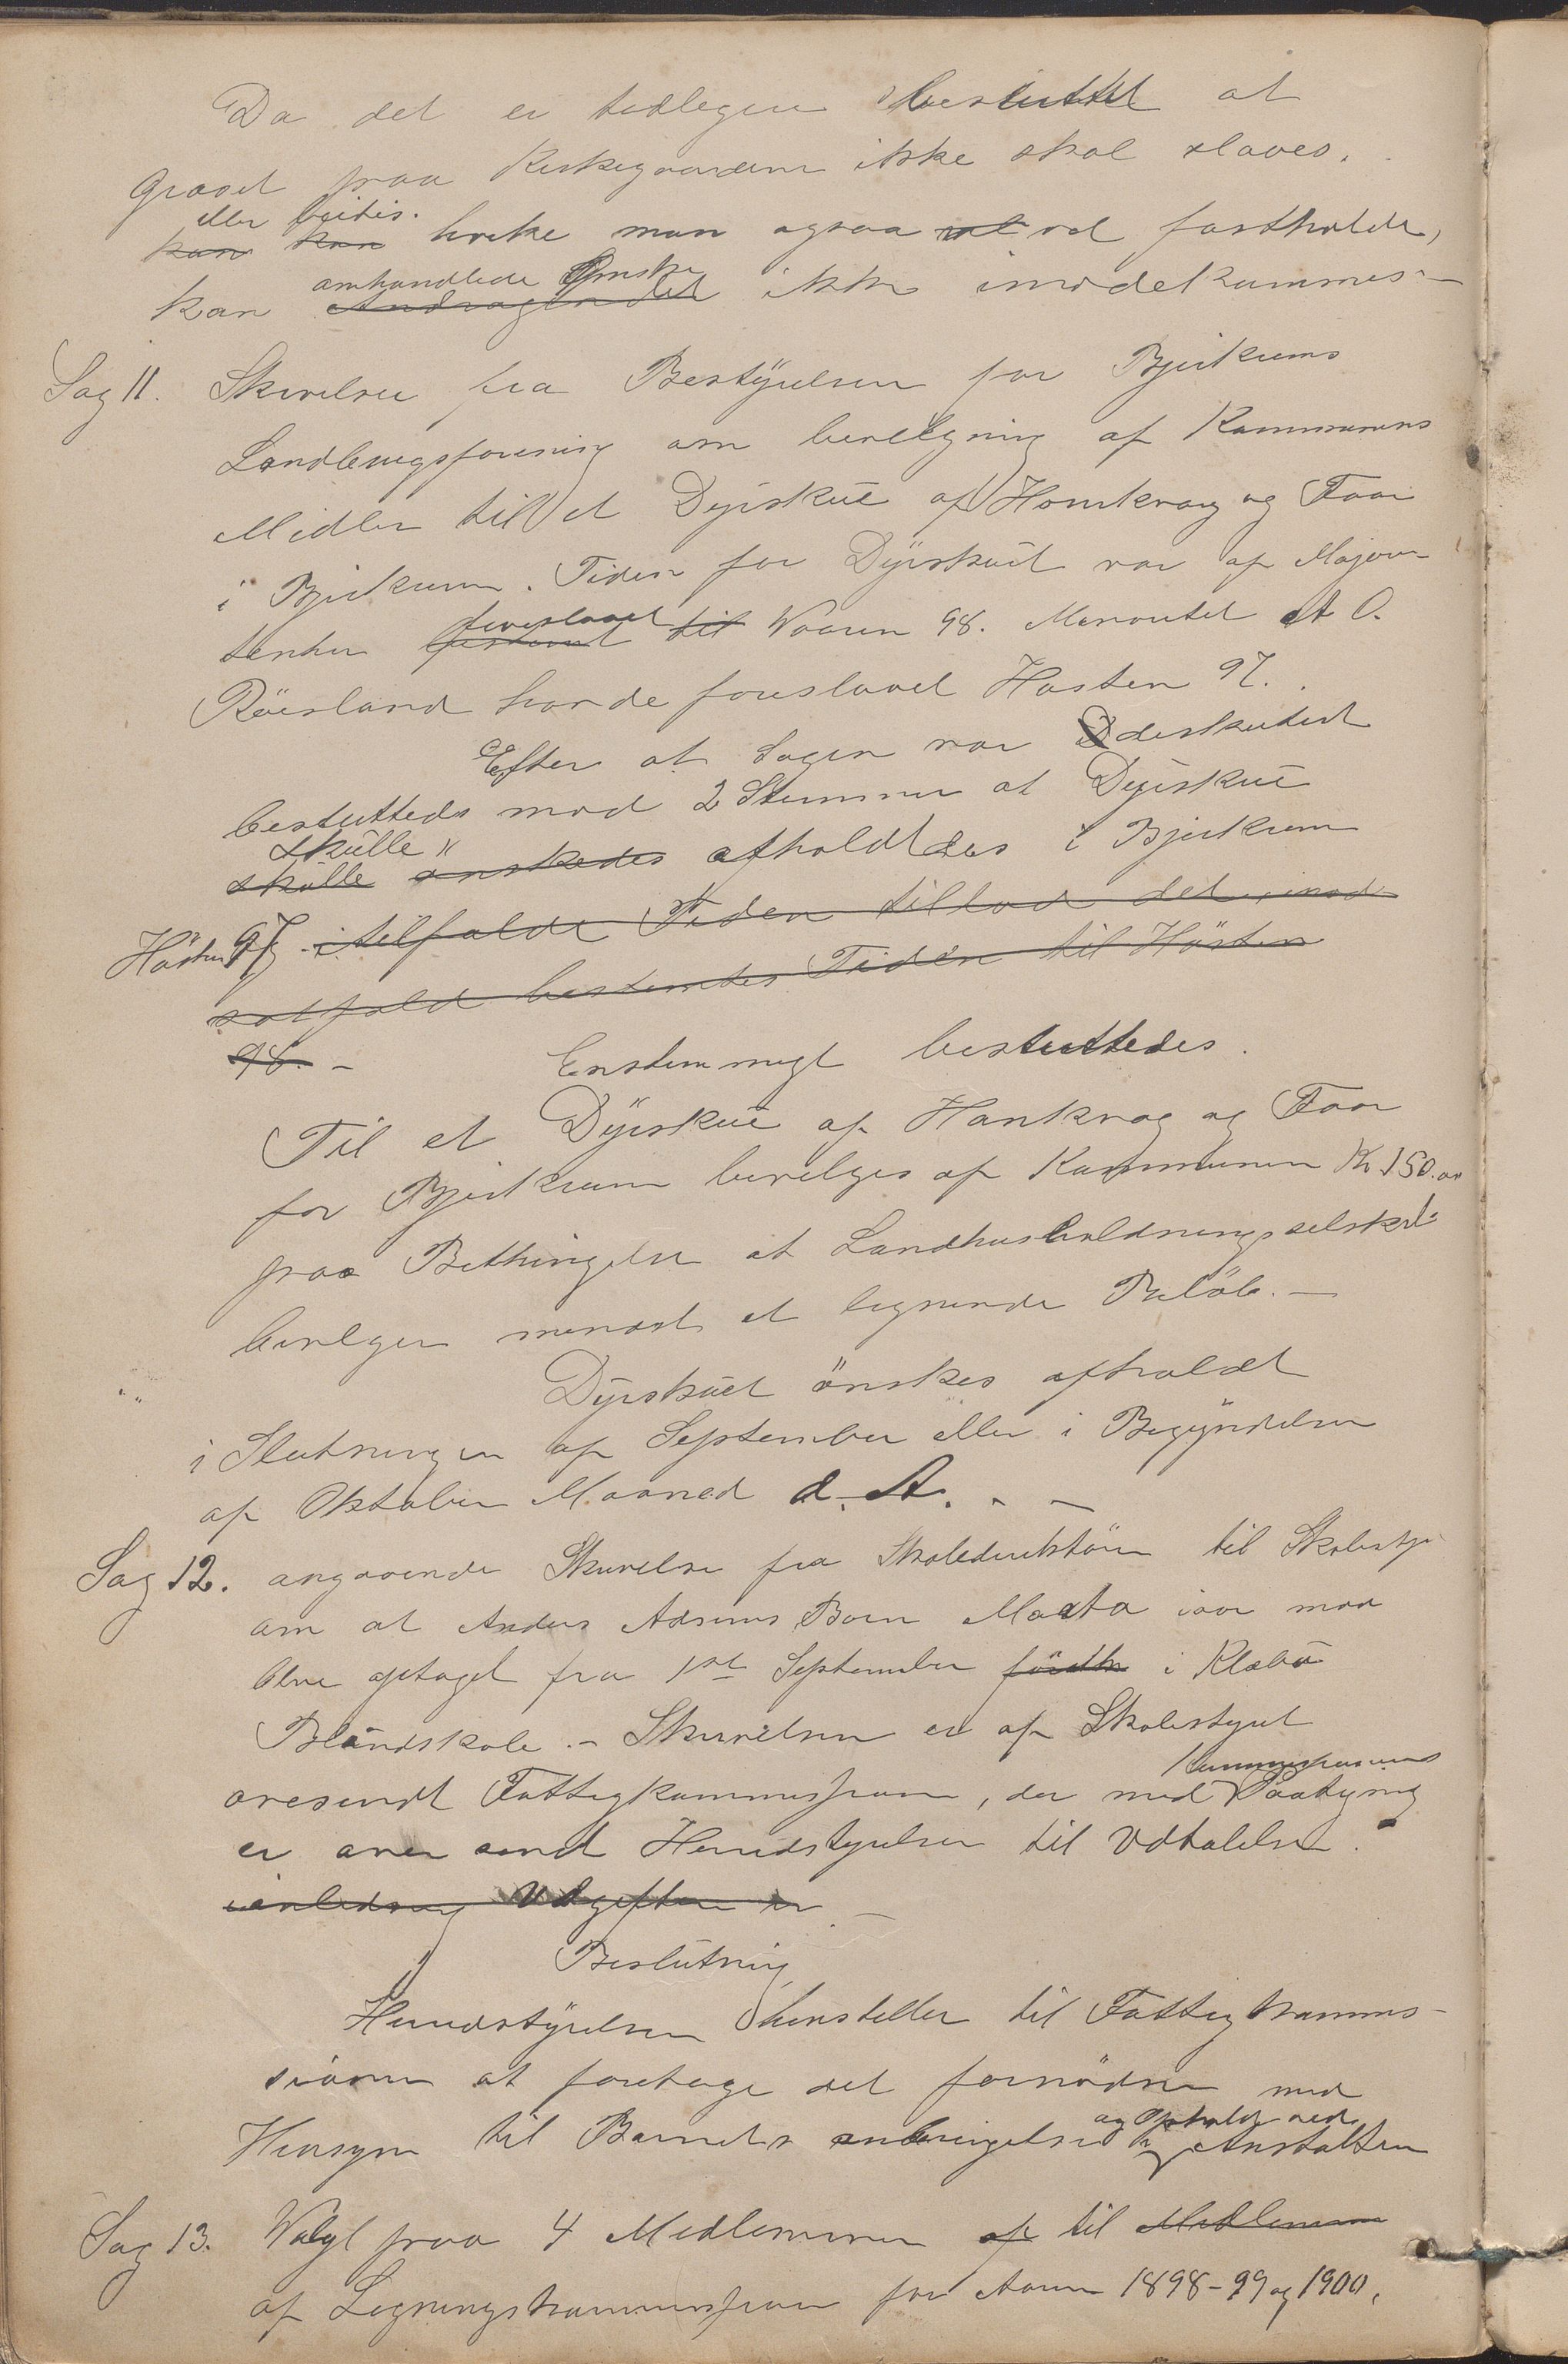 Da det er tidligere besluttet at
Græset paa Kirkegaardene ikke skal slaaes.
eller beites.
kan kan hvike man ogsaa at vel fastholde,
omhandlede Ønske
kan Andragendet ikke imødekommes. —
Sag 11. Skrivelse fra Bestyrelsen for Bjerkreims
Landbrugsforening om bevilgning af Kommunens
Midler til et Dyrskue af Hornkvæg og Faar
i Bjerkreim. Tiden for Dyrskuet var af Majori-
foreslaaet
teten bestemt til Vaaren 98. Mindretallet A. O.
Røisland havde foreslaaet Høsten 97.
Efter at Sagen var D diskuteret
besluttedes mod 2 Stemmer at Dyrskue
skulle
skulle ønskedes afholdtdes i Bjerkreim
Høsten 97 itilfælde Tiden tillod det, imod-
satfald bestemtes Tiden til Høsten
98. – Enstemmigt besluttedes.
Til et Dyrskue af Hornkvæg og Faar
for Bjerkreim bevilges af Kommunen Kr 150.00
paa Bethingelse at Landhusholdningsselskab
bevilger mindst et lignende Beløb. —
Dyrskuet ønskes afholdt
i Slutningen af September eller i Begyndelsen
af Oktober Maaned d. A. —
Sag 12. angaaende Skrivelse fra Skoledirektøren til Skolesty
om at Anders Barn Marta iaar maa
blive optaget fra 1ste September født i Klæbo
Blindskole. – Skrivelsen er af Skolestyret
Kommissionens
oversendt Fattigkommissionen, der med Paategning
er over sendt Herredstyrelsen til Udtalelse.
ianledning Udgiften er. —
Beslutning
Herredstyrelsen henstiller til Fattigkommis-
sionen at foretage det fornødne med
og Ophold ved
Hensyn til Barnets anbringelse i Anstalten
Sag 13. Valgt paa 4 Medlemmer af til Medlemmer
af Ligningskommissionen for Aarene 1898-99 og 1900.